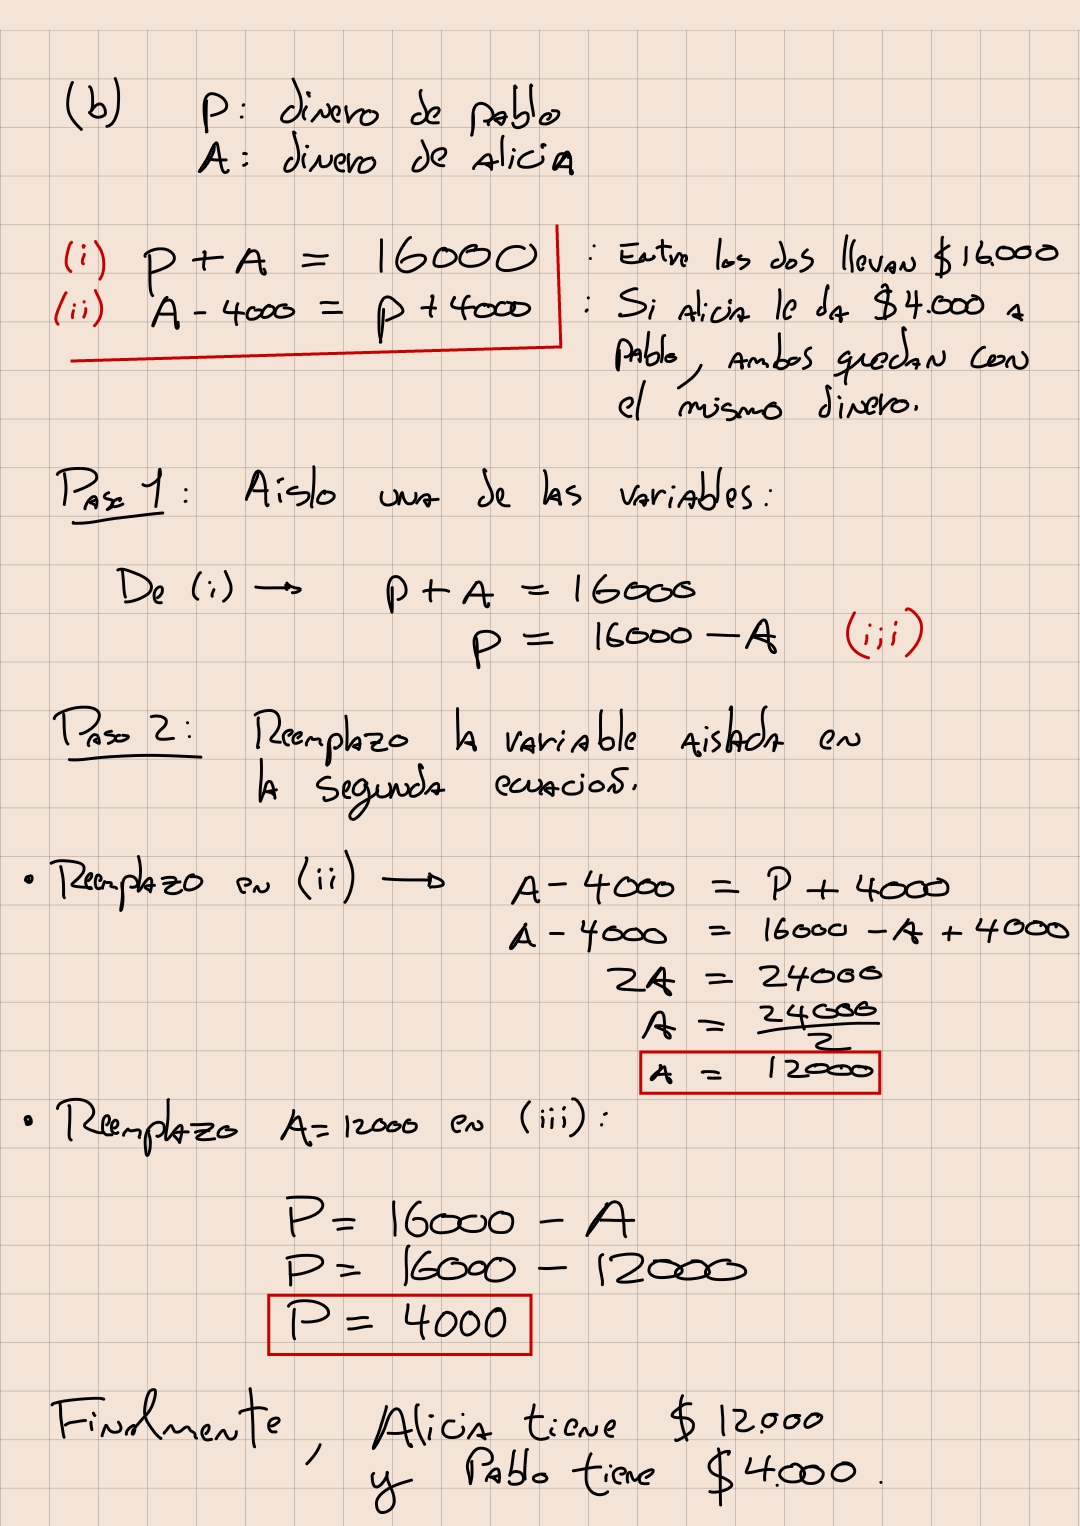 (b) P: dinero de pablo
A: dinero de Alicia
(i) P + A = 16000 : Entre los dos llevan $16.000
(ii) A - 4000 = P + 4000 : Si Alicia le da $4.000 a
Pablo, ambos quedan con
el mismo dinero.
Paso 1: Aislo una de las variables:
De (i) → P + A = 16000
P = 16000 - A (iii)
Paso 2: Reemplazo la variable aislada en
la segunda ecuación.
• Reemplazo en (ii) → A - 4000 = P + 4000
A - 4000 = 16000 - A + 4000
2A = 24000
A = 24000/2
A = 12000
• Reemplazo A = 12000 en (iii):
P = 16000 - A
P = 16000 - 12000
P = 4000
Finalmente, Alicia tiene $12.000
y Pablo tiene $4.000.